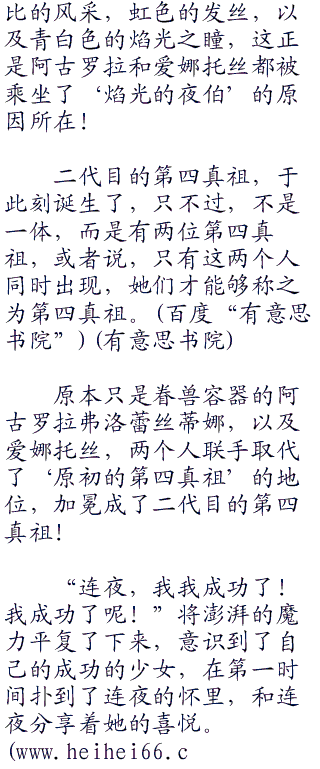 比的风采，虹色的发丝，以
及青白色的焰光之瞳，这正
是阿古罗拉和爱娜托丝都被
乘坐了‘焰光的夜伯’的原
因所在！
二代目的第四真祖，于
此刻诞生了，只不过，不是
一体，而是有两位第四真
祖，或者说，只有这两个人
同时出现，她们才能够称之
为第四真祖。(百度“有意思
书院”)(有意思书院)
原本只是眷兽容器的阿
古罗拉弗洛蕾丝蒂娜，以及
爱娜托丝，两个人联手取代
了‘原初的第四真祖’的地
位，加冕成了二代目的第四
真祖！
“连夜，我我成功了！
我成功了呢！”将澎湃的魔
力平复了下来，意识到了自
己的成功的少女，在第一时
间扑到了连夜的怀里，和连
夜分享着她的喜悦。
(www.heihei66.c